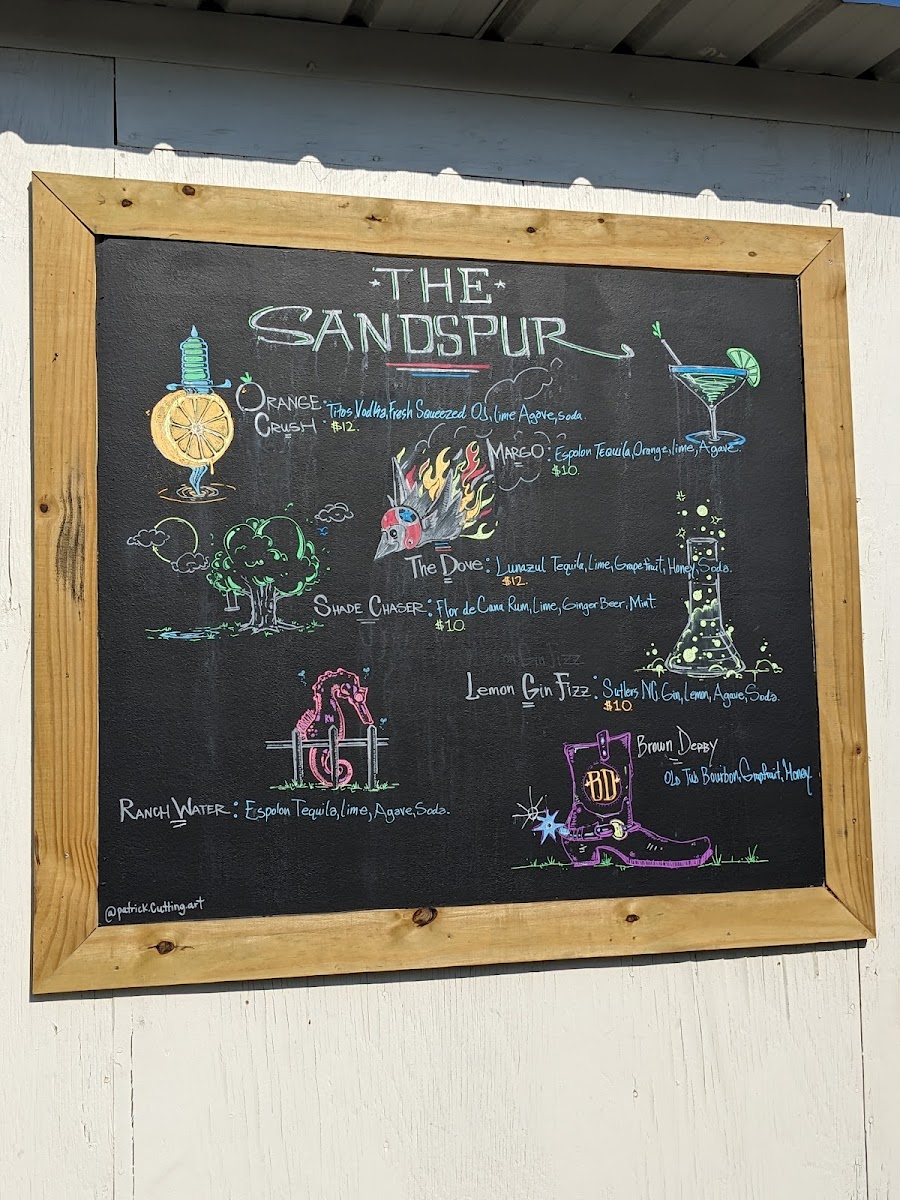 THE
SANDSPUR
ORANGE CRUSH : Titos Vodka, Fresh Squeezed OJ, lime Agave, soda.
$12.
MARGO : Espolon Tequila, Orange, lime, Agave.
$10.
THE DOVE : Lunazul Tequila, Lime, Grapefruit, Honey, Soda.
$12.
SHADE CHASER : Flor de Cana Rum, Lime, Ginger Beer, Mint
$10
Gin Fizz
Lemon Gin Fizz : Sutlers NC Gin, Lemon, Agave, Soda.
$10
RW
Brown Derby
BD
OLD Tub Bourbon, Grapefruit, Honey.
RANCH WATER : Espolon Tequila, Lime, Agave, Soda.
@patrick.Cutting.art